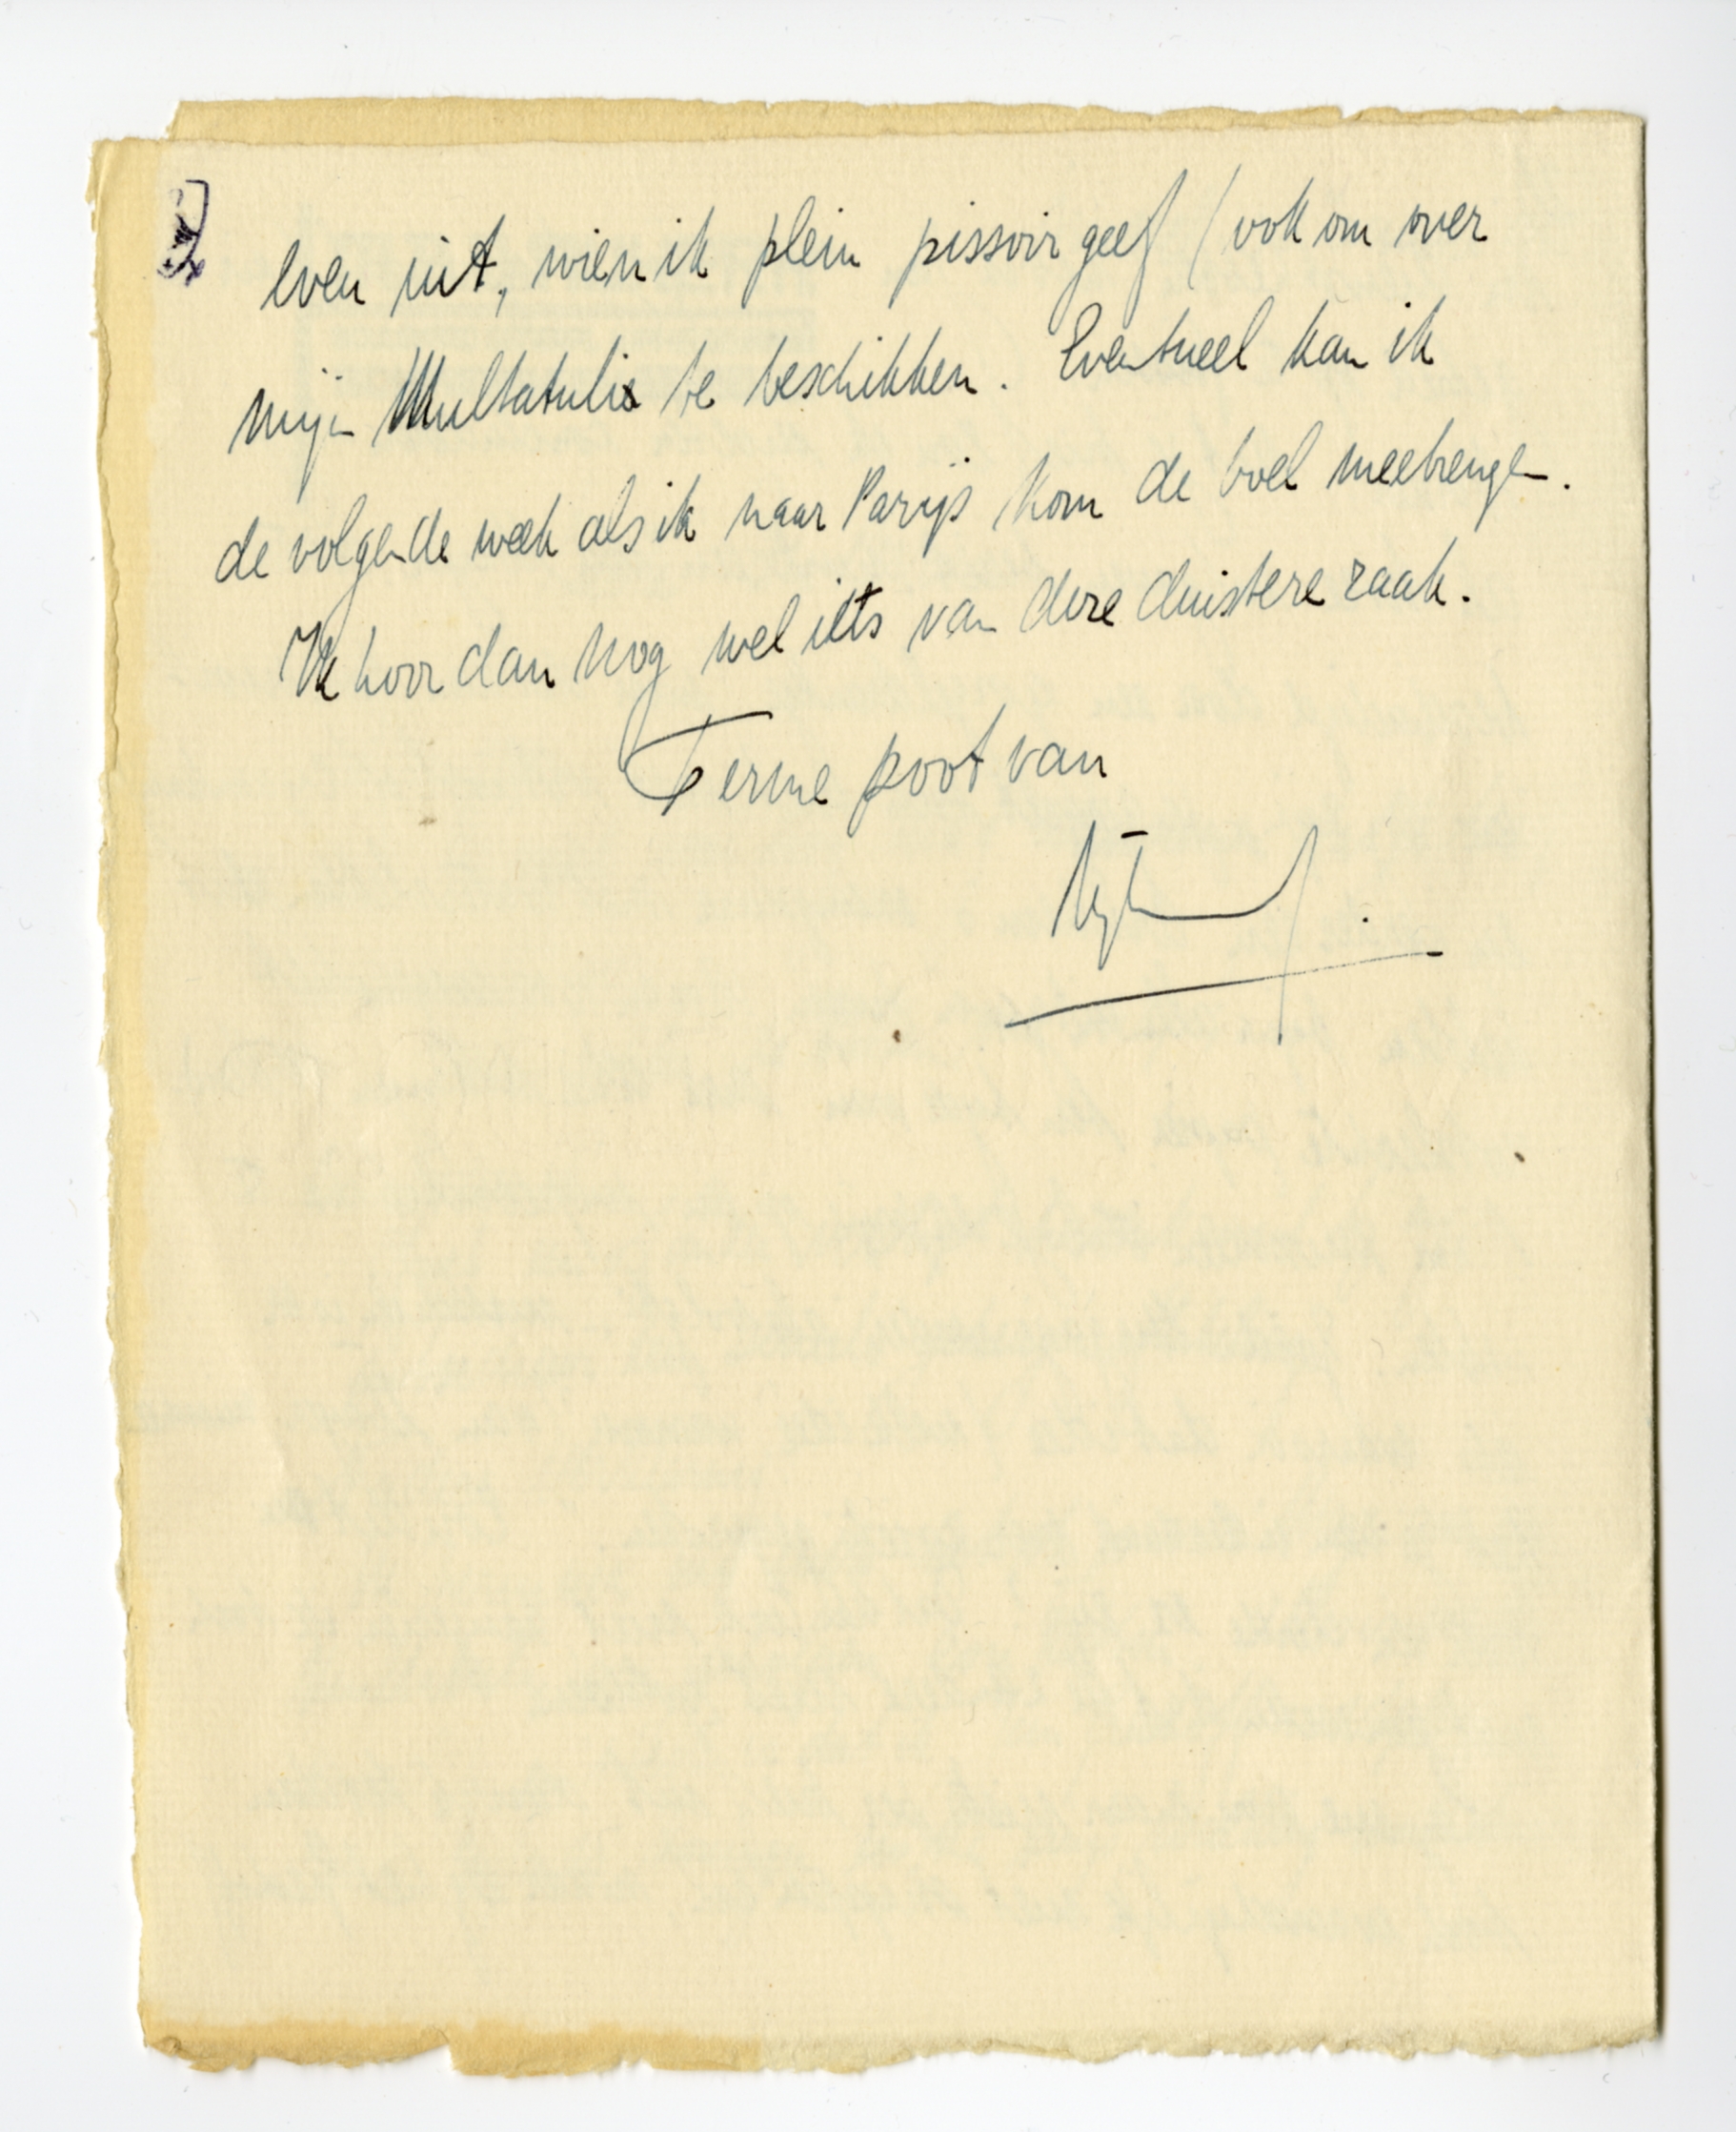 even uit, wien ik plein pissoir geef (ook om over
mijn Multatuli te beschikken. Eventueel kan ik
de volgende week als ik naar Parijs kom de boel meebrengen.
Ik hoor dan nog wel iets van deze duistere zaak.
Ferme poot van